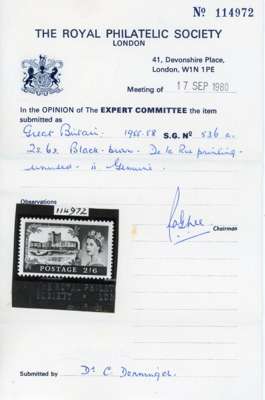 Nº 114972
THE ROYAL PHILATELIC SOCIETY
LONDON
41, Devonshire Place,
London, W1N 1PE
Meeting of 17 SEP 1980
In the OPINION of The EXPERT COMMITTEE the item
submitted as
Great Britain. 1955-58 S.G. Nº 536a.
2s.6d. Black-brown. De la Rue printing-
unused - is Genuine.
Observations
Chairman
114972
POSTAGE 2/6
THE ROYAL PHILAT
SOCIETY LON
Submitted by Dr C